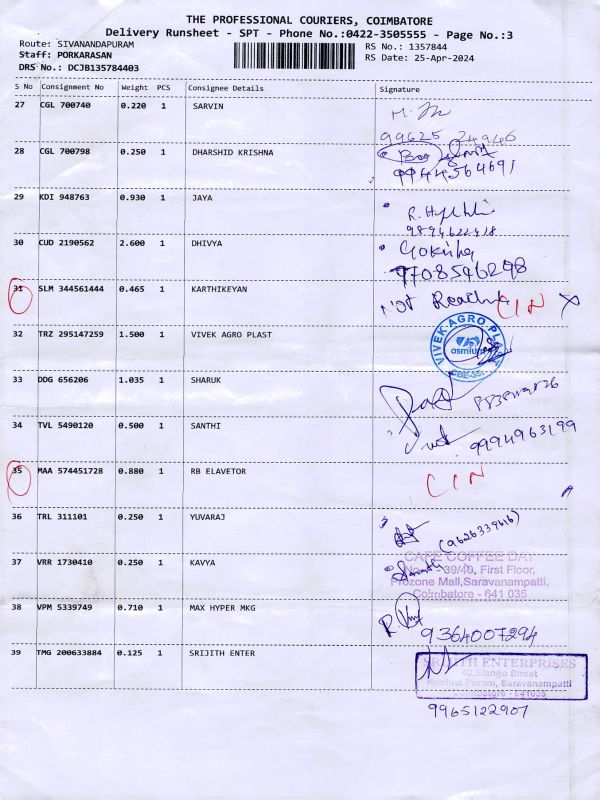 THE PROFESSIONAL COURIERS, COIMBATORE
Delivery Runsheet - SPT - Phone No.:0422-3505555 - Page No.:3
Route: SIVANANDAPURAM
RS No.: 1357844
Staff: PORKARASAN
RS Date: 25-Apr-2024
DRS No.: DCJB135784403
S No Consignment No Weight PCS Consignee Details Signature
27 CGL 700740 0.220 1 SARVIN
99625 24946
28 CGL 700798 0.250 1 DHARSHID KRISHNA
9944564691
29 KDI 948763 0.930 1 JAYA
9894622418
30 CUD 2190562 2.600 1 DHIVYA
9708546298
31 SLM 344561444 0.465 1 KARTHIKEYAN
Not CIN X
32 TRZ 295147259 1.500 1 VIVEK AGRO PLAST
VIVEK AGRO
osmium
33 DDG 656206 1.035 1 SHARUK
34 TVL 5490120 0.500 1 SANTHI
9994963199
35 MAA 574451728 0.880 1 RB ELAVETOR
CIN
36 TRL 311101 0.250 1 YUVARAJ
(9626339616)
37 VRR 1730410 0.250 1 KAVYA
CAFE COFFEE DAY
39/40, First Floor,
Prozone Mall,Saravanampatti,
Coimbatore - 641 035
38 VPM 5339749 0.710 1 MAX HYPER MKG
9364007294
39 TMG 200633884 0.125 1 SRIJITH ENTER
SRIJITH ENTERPRISES
40,Elango Street
Krishna Puram, Saravanampatti
Coimbatore - 641035
9965122907